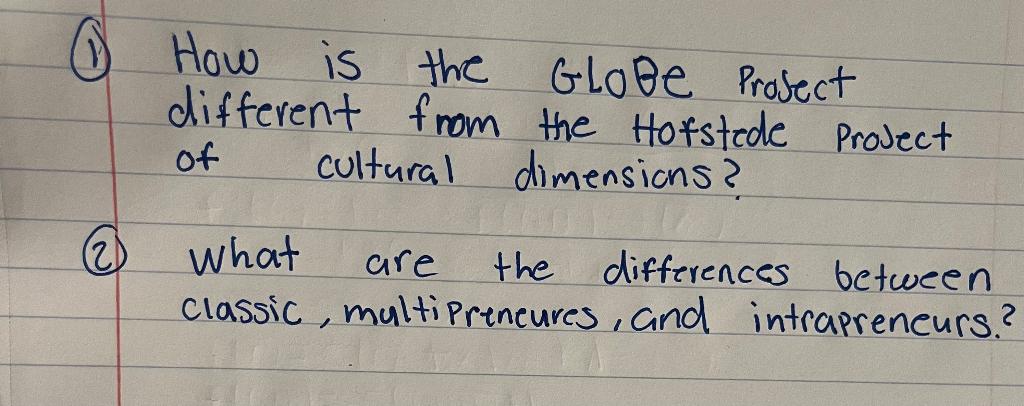 ① How is the GLOBe Project
different from the Hofstede Project
of cultural dimensions?
② what are the differences between
classic, multipreneures, and intrapreneurs.?